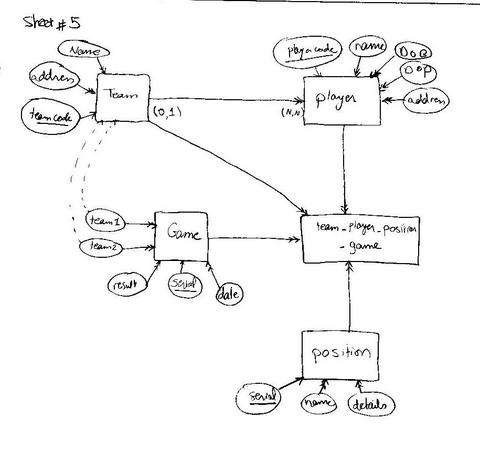 Sheet #5
Name
address
teamcode
Team
(0,1)
playercode
name
DOB
DOP
address
player
(N,N)
team1
team2
Game
result
serial
date
team_player_position
_game
position
serial
name
details